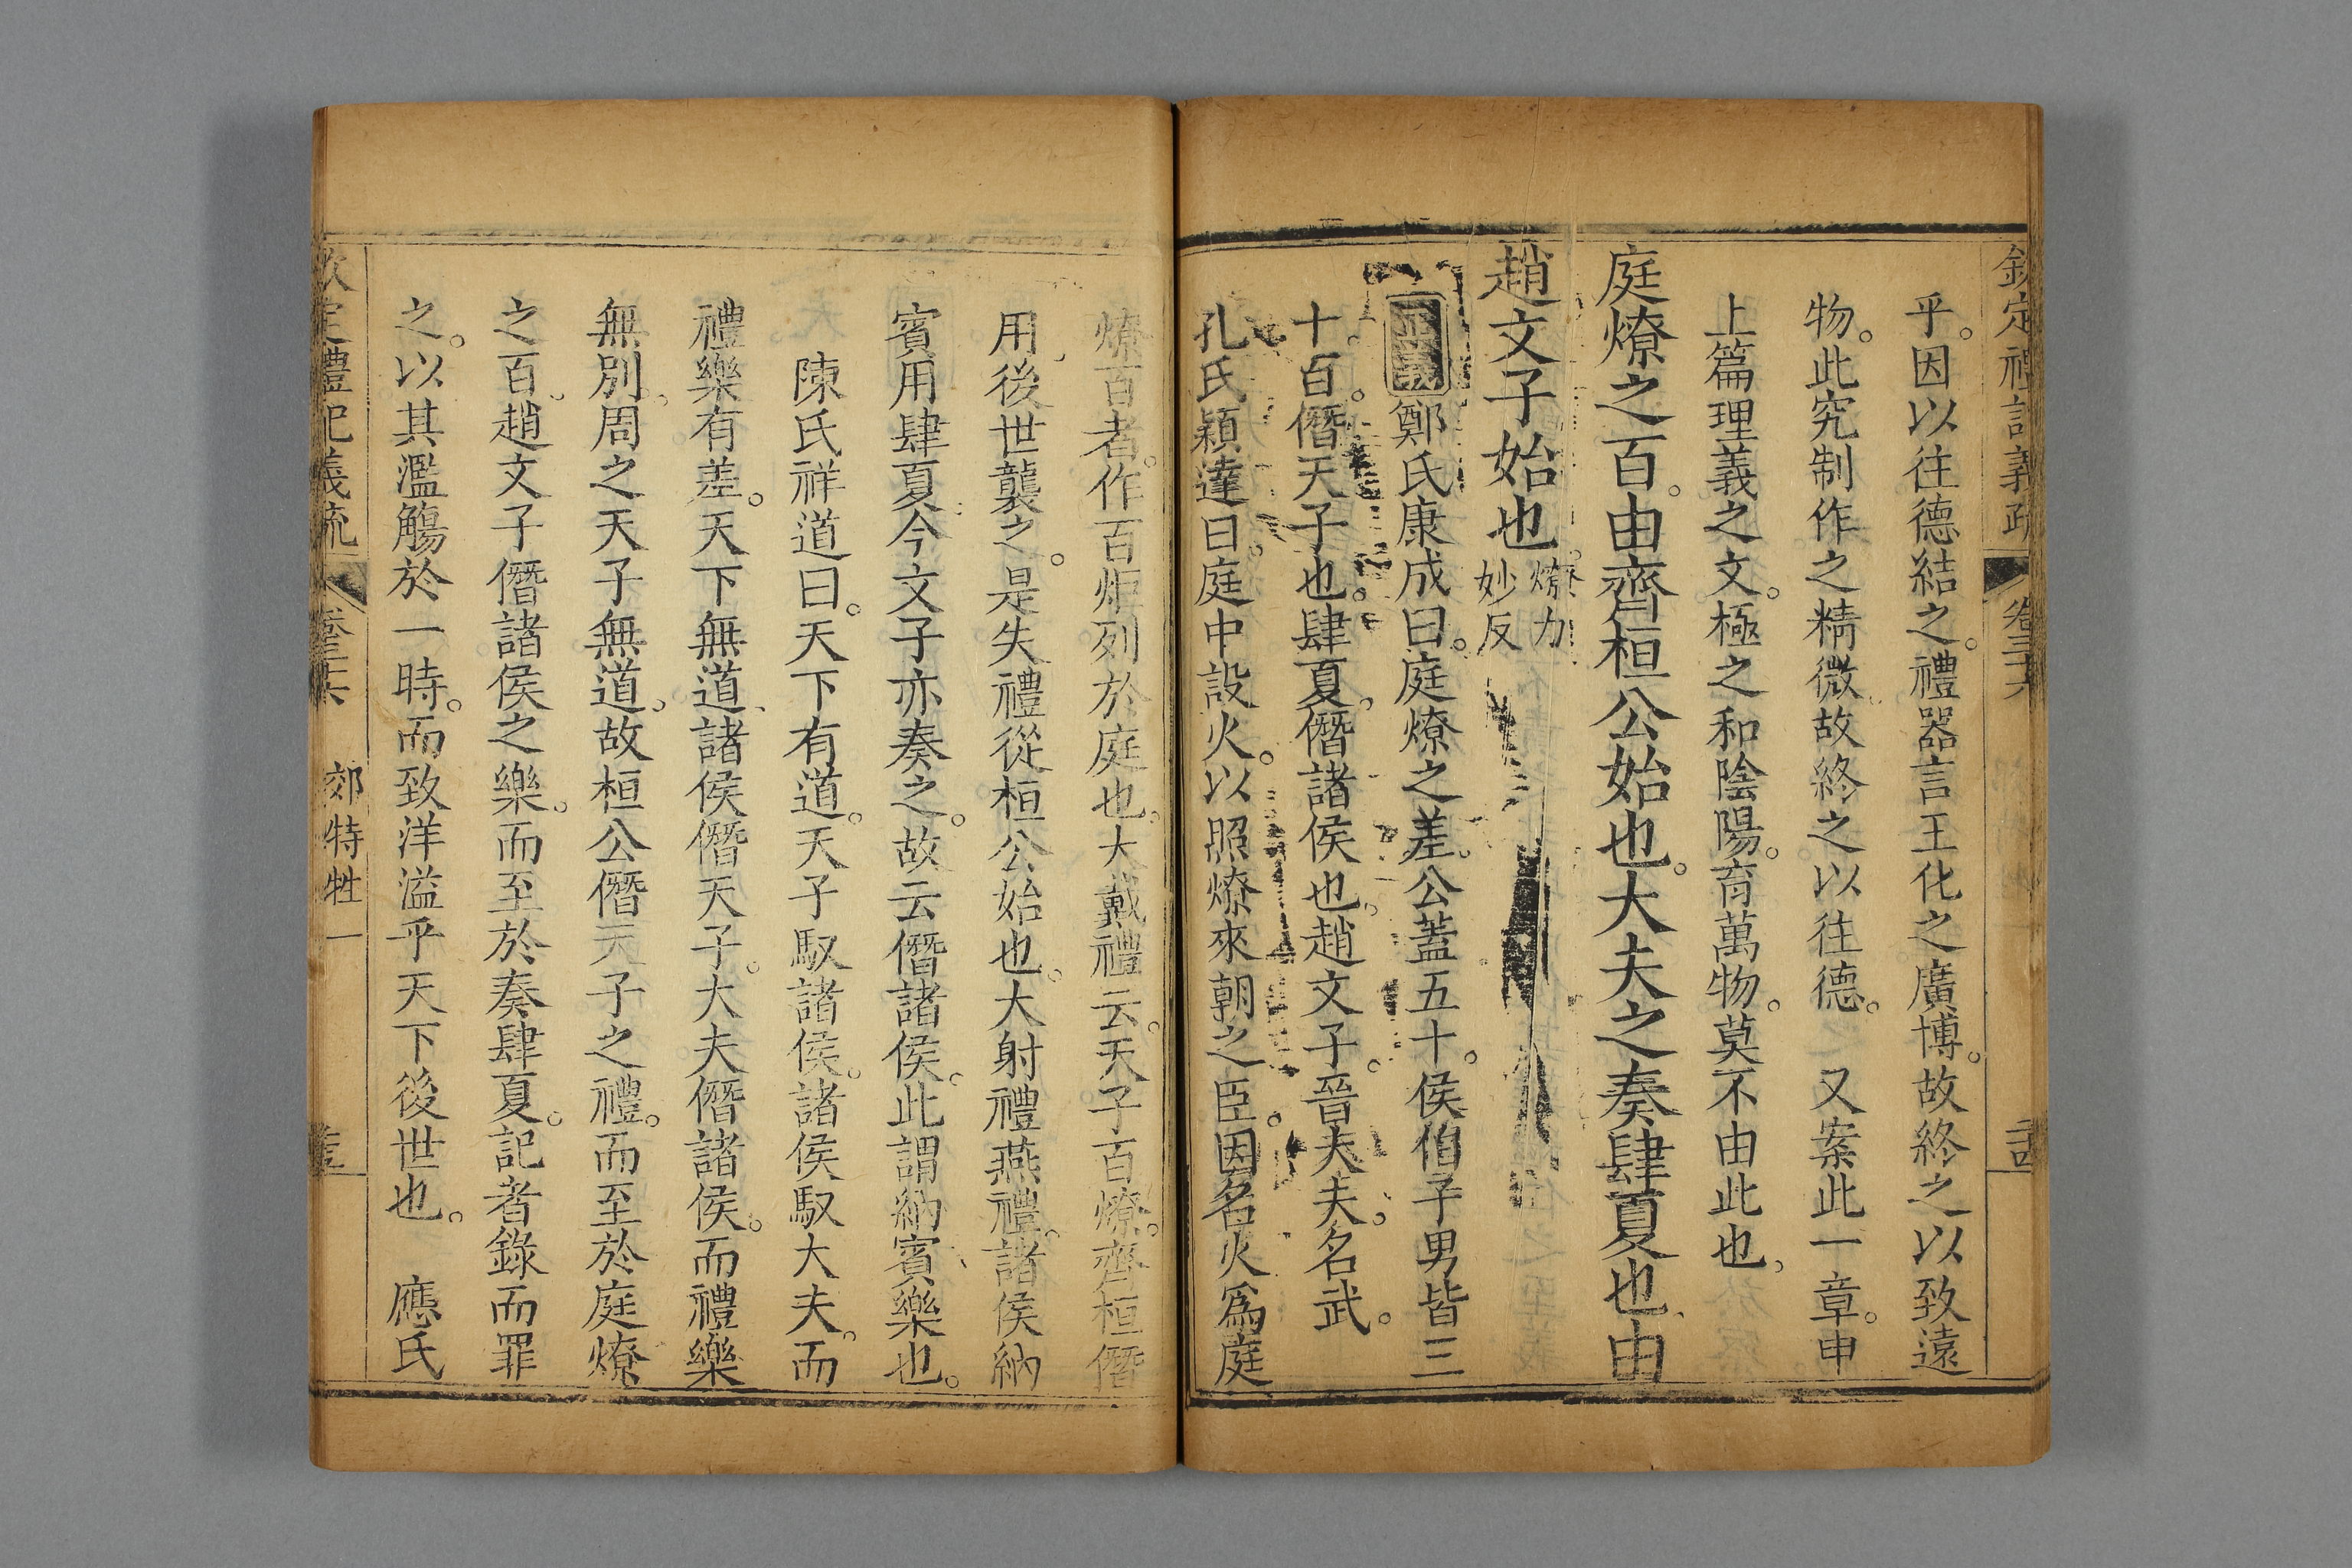 欽定禮記義疏 卷三十六 三十四
乎。因以往德結之。禮器言王化之廣博。故終之以致遠
物。此究制作之精微。故終之以往德。 又案此一章。申
上篇理義之文。極之和陰陽。育萬物。莫不由此也、
庭燎之百。由齊桓公始也。大夫之奏肆夏也、由
趙文子始也。燎力妙反
正義 鄭氏康成曰。庭燎之差。公蓋五十。侯伯子男皆三
十。百。僭天子也。肆夏。僭諸侯也。趙文子。晉大夫。名武。
孔氏穎達曰。庭中設火。以照燎來朝之臣。因名火為庭
燎。百者。作百炬列於庭也。大戴禮云。天子百燎。齊桓僭
用、後世襲之。是失禮從桓公始也。大射禮燕禮。諸侯納
賓用肆夏、今文子亦奏之。故云僭諸侯。此謂納賓樂也。
陳氏祥道曰。天下有道。天子馭諸侯。諸侯馭大夫。而
禮樂有差。天下無道、諸侯僭天子。大夫僭諸侯。而禮樂
無別。周之天子無道。故桓公僭天子之禮。而至於庭燎
之百。趙文子僭諸侯之樂。而至於奏肆夏。記者錄而罪
之。以其濫觴於一時。而致洋溢乎天下後世也。 應氏
欽定禮記義疏 卷三十六 郊特牲一